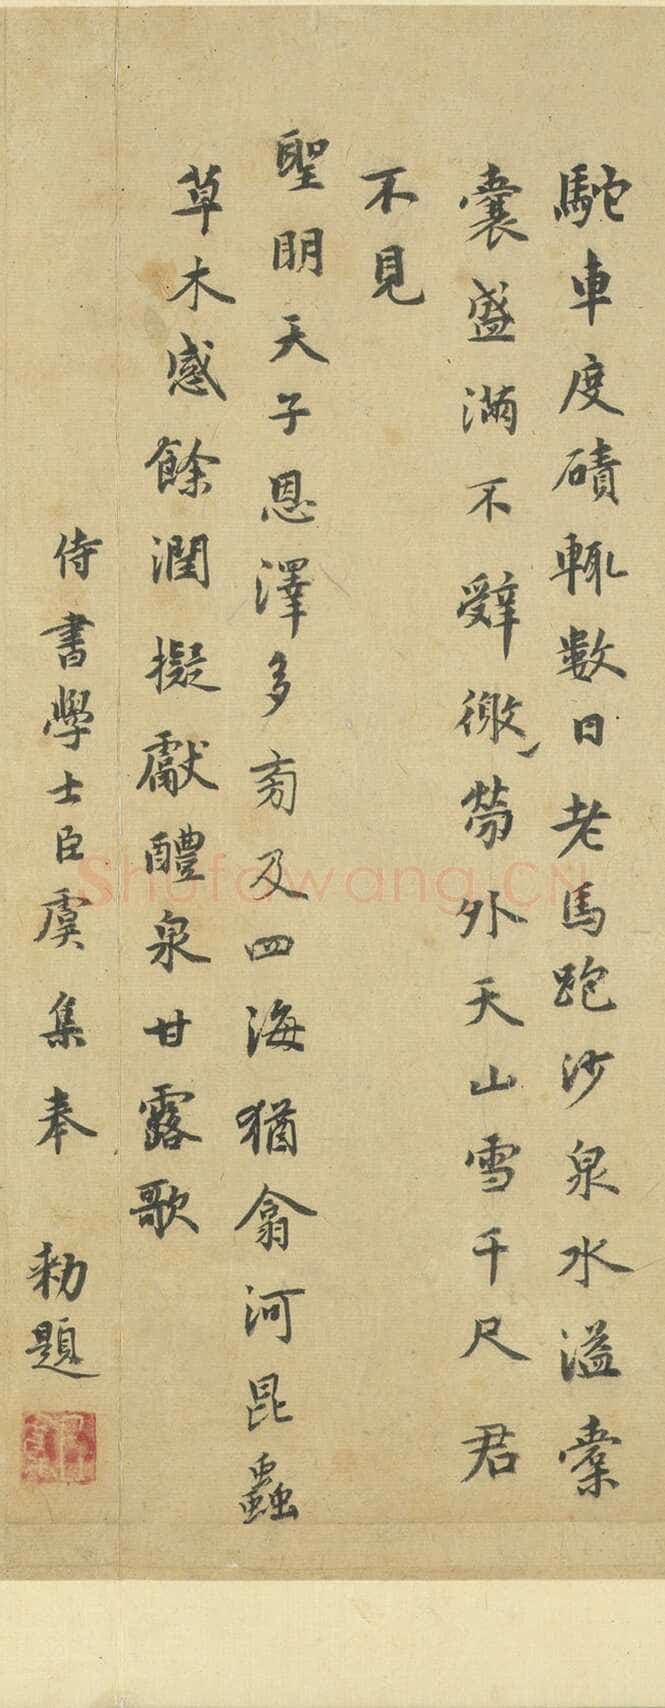 駝車度磧輒數日老馬跑沙泉水溢橐
囊盛滿不辭微勞外天山雪千尺君
不見
聖明天子恩澤多旁及四海猶翕河昆蟲
草木感餘潤擬獻醴泉甘露歌
侍書學士臣虞集奉 勑題
Shufawang.CN